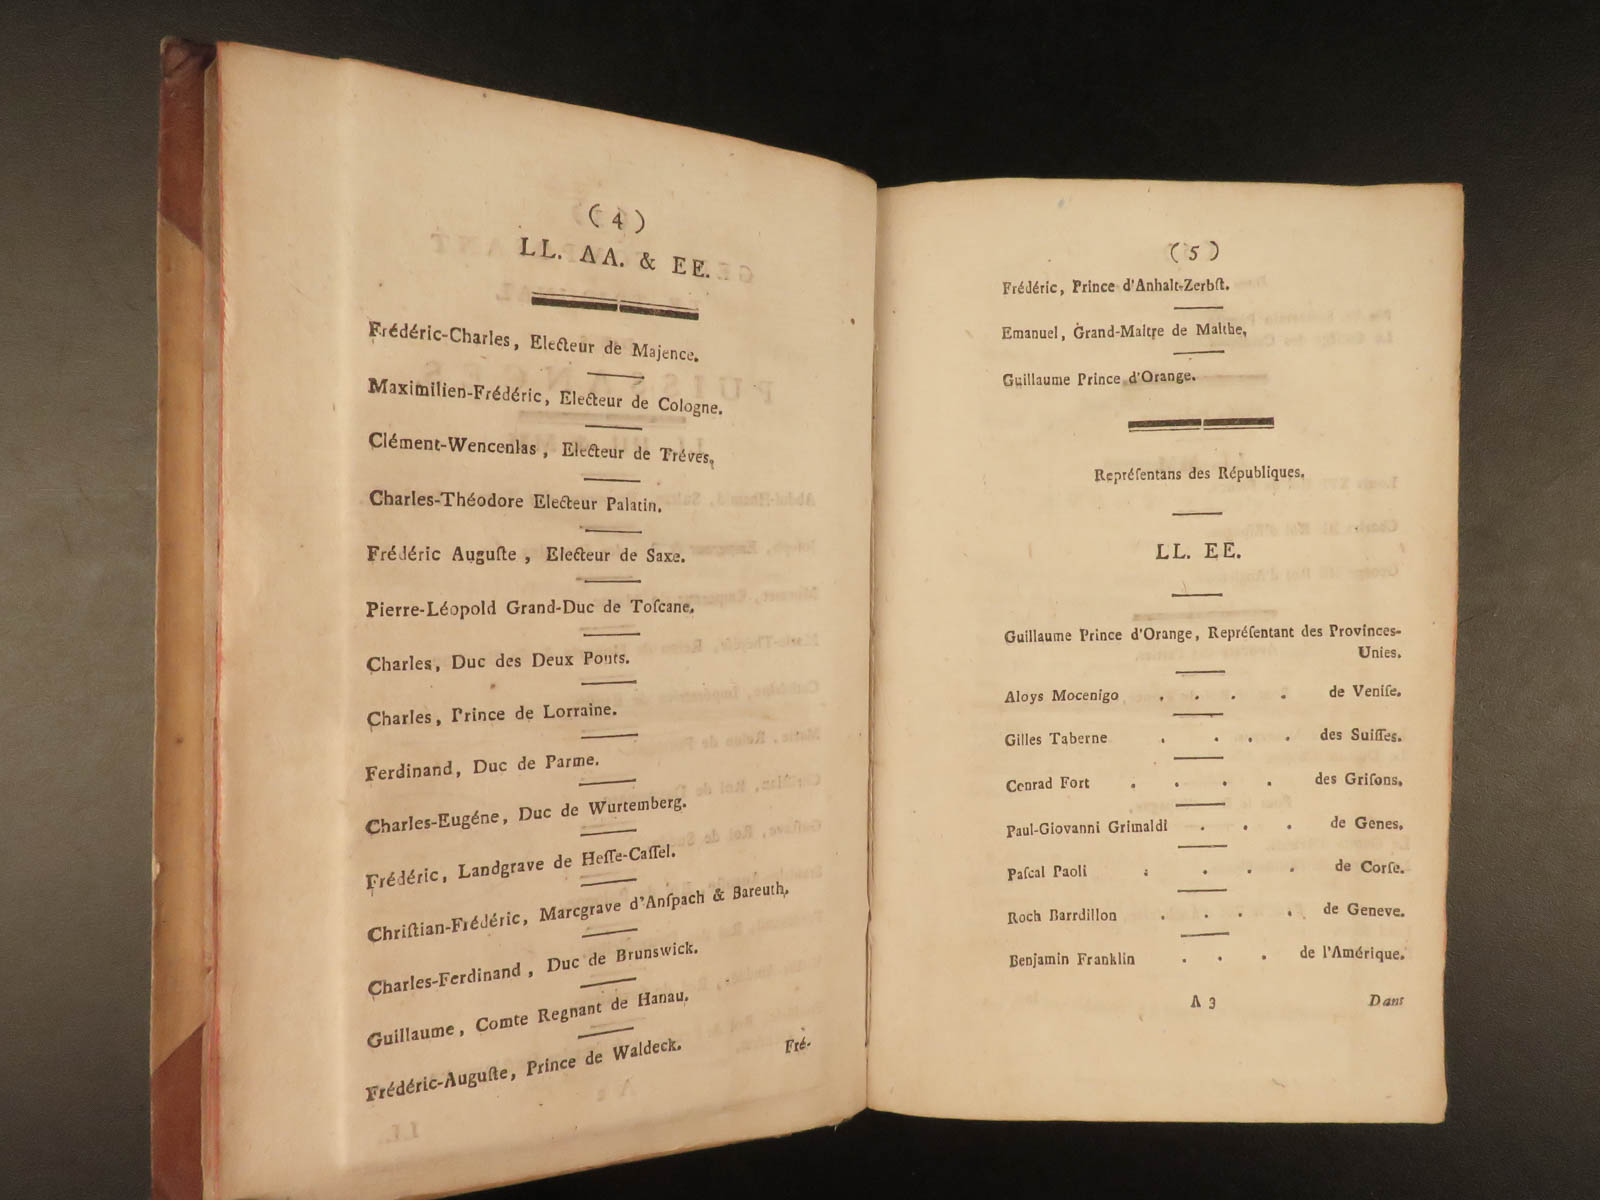 ( 4 )
LL. AA. & EE.
Frédéric-Charles, Electeur de Majence.
Maximilien-Frédéric, Electeur de Cologne.
Clément-Wencenlas, Electeur de Tréves,
Charles-Théodore Electeur Palatin.
Frédéric Auguſte, Electeur de Saxe.
Pierre-Léopold Grand-Duc de Toſcane.
Charles, Duc des Deux Ponts.
Charles, Prince de Lorraine.
Ferdinand, Duc de Parme.
Charles-Eugéne, Duc de Wurtemberg.
Frédéric, Landgrave de Heſſe-Caſſel.
Chriſtian-Frédéric, Marcgrave d'Anſpach & Bareuth.
Charles-Ferdinand, Duc de Brunswick.
Guillaume, Comte Regnant de Hanau.
Frédéric-Auguſte, Prince de Waldeck.
Fré-
( 5 )
Frédéric, Prince d'Anhalt-Zerbſt.
Emanuel, Grand-Maltre de Malthe,
Guillaume Prince d'Orange.
Repréſentans des Républiques.
LL. EE.
Guillaume Prince d'Orange, Repréſentant des Provinces-
Unies.
Aloys Mocenigo . . . . de Veniſe.
Gilles Taberne . . . . des Suiſſes.
Conrad Fort . . . . des Griſons.
Paul-Giovanni Grimaldi . . . de Genes.
Paſcal Paoli . . . . de Corſe.
Roch Barrdillon . . . . de Geneve.
Benjamin Franklin . . . de l'Amérique.
A 3 Dans